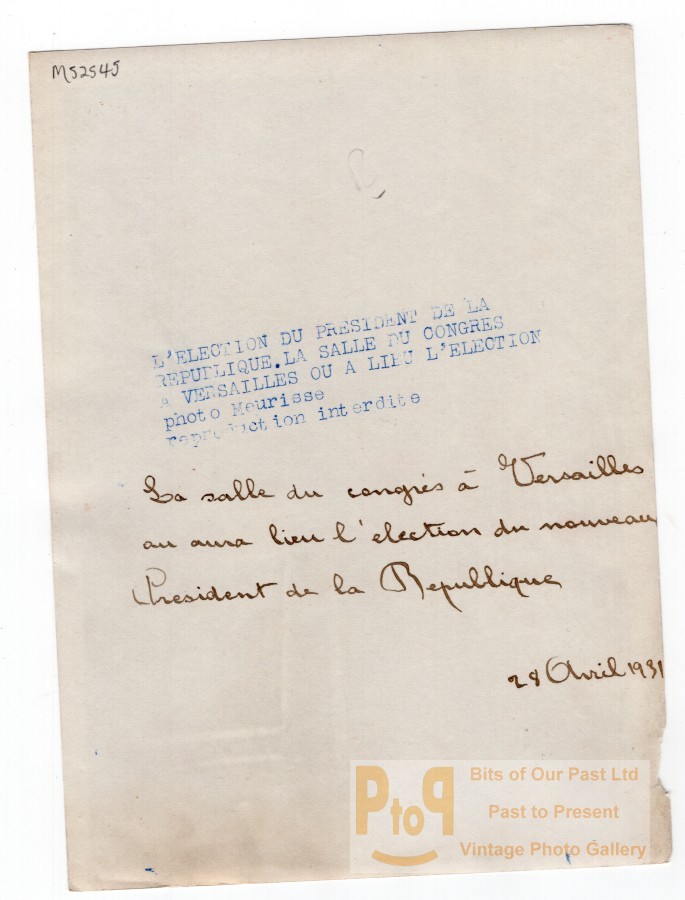 M52545
L'ELECTION DU PRESIDENT DE LA
REPUBLIQUE.LA SALLE DU CONGRES
A VERSAILLES OU A LIEU L'ELECTION
photo Meurisse
reproduction interdite
La salle du congrès à Versailles
au aura lieu l'election du nouveau
President de la Republique
28 Avril 1931
PtoP
Bits of Our Past Ltd
Past to Present
Vintage Photo Gallery